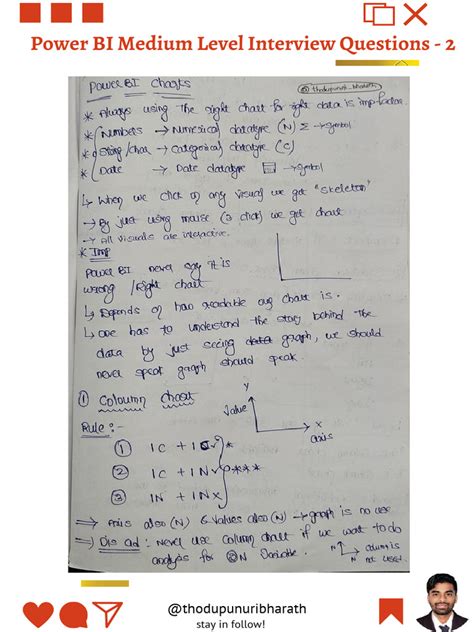 Power BI Medium Level Interview Questions - 2
Power BI Charts
@thodupunuri_bharath
* Always using The right chart for right data is imp factor.
* Numbers → Numerical datatype (N) Σ → symbol
* String/char → Categorical datatype (C)
* Date → Date datatype → symbol
↳ When we click on any visual we get "skeleton"
→ By just using mouse (3 click) we get chart
→ All visuals are interactive.
* Imp
Power BI never say it is
wrong / Right chart
↳ Depends on how readable our chart is.
↳ one has to understand the story behind the
data by just seeing graph, we should
never speak graph should speak.
① Coloumn Chart
Y
Value
X
axis
Rule :-
① 1C + 1C ✓ *
② 1C + 1N ✓ ****
③ 1N + 1N X
⇒ Axis also (N) & Values also (N) → graph is no use
⇒ Dis ad : Never use Column chart if we want to do
analysis for ② N Variable.
N
N
column is
not used
@thodupunuribharath
stay in follow!